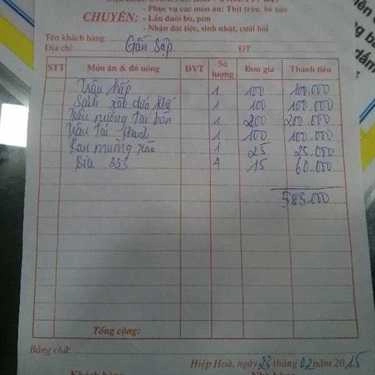 - Phục vụ các món ăn: Thịt trâu, bò xào
CHUYÊN: - Lẩu đuôi bò, pín
- Nhận đặt tiệc, sinh nhật, cưới hỏi
Tên khách hàng:
Địa chỉ: Gần Sập ĐT
STT Món ăn & đồ uống ĐVT Số lượng Đơn giá Thành tiền
Trâu hấp 1 100 100.000
Sách xào dưa 1 100 100.000
nướng tại bàn 1 200 200.000
tái 1 100 100.000
Rau muống xào 1 25 25.000
Bia 333 4 15 60.000
585.000
Tổng cộng:
Bằng chữ:
Hiệp Hoà, ngày 23 tháng 02 năm 2015
Khách hàng